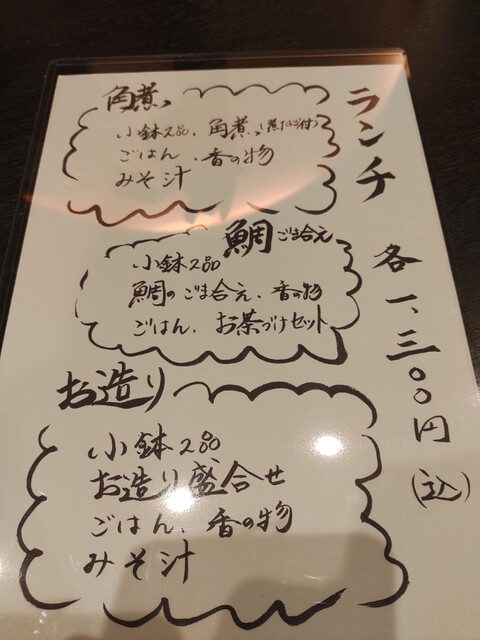 ランチ 各一、三〇〇円(込)
角煮
小鉢2品、角煮(煮たまご付)
ごはん、香の物
みそ汁
鯛ごま合え
小鉢2品
鯛のごま合え、香の物
ごはん、お茶づけセット
お造り
小鉢2品
お造り盛合せ
ごはん、香の物
みそ汁